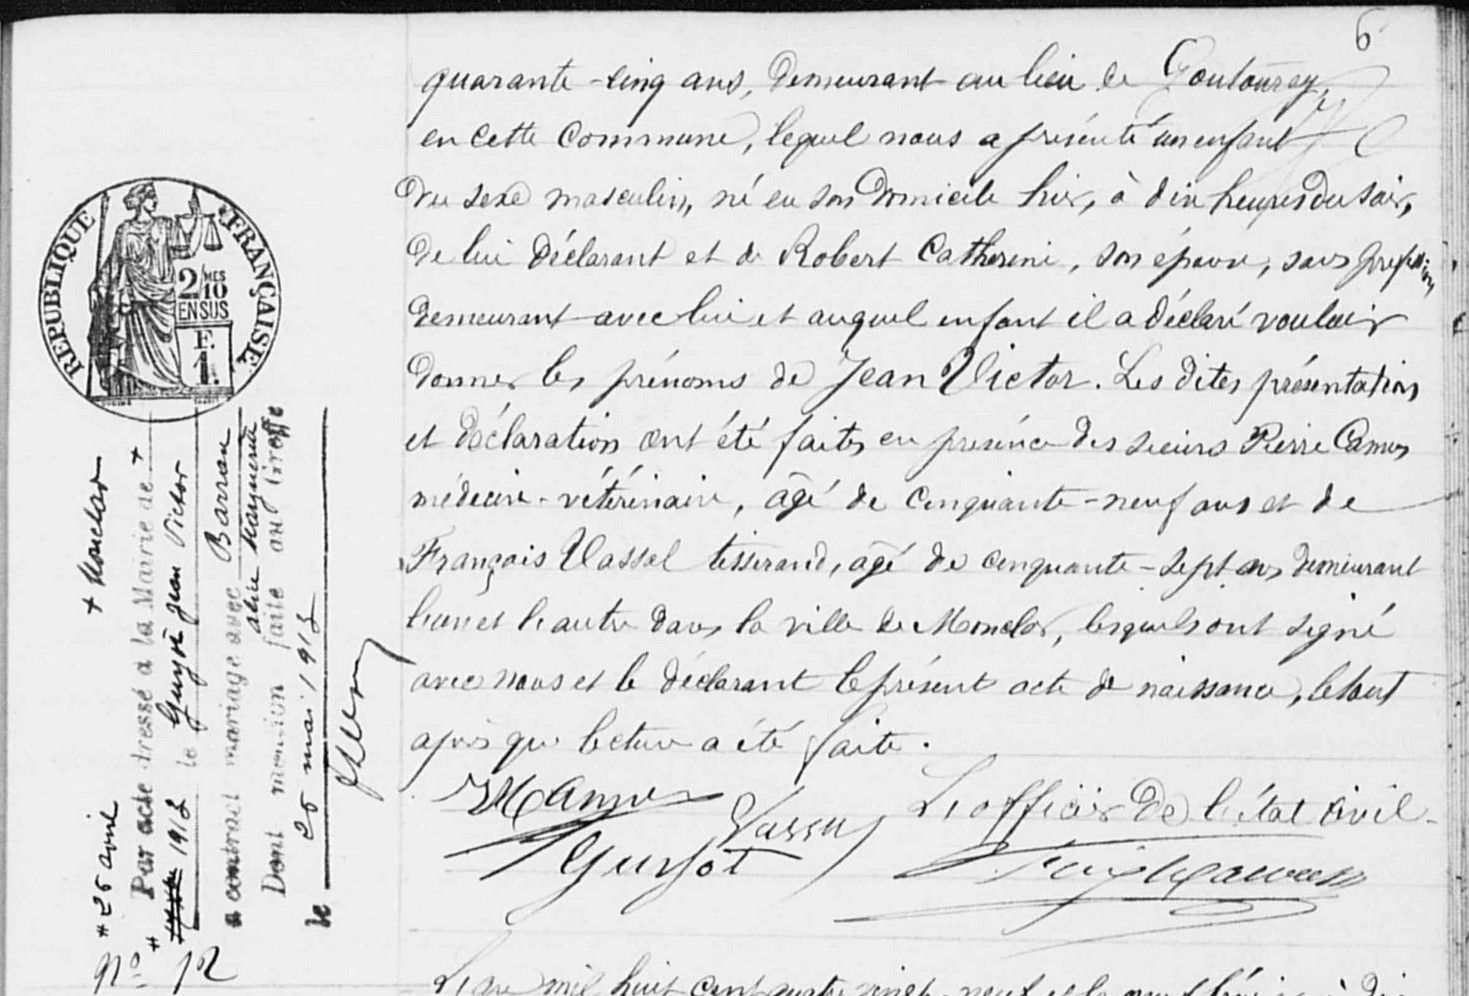 6
quarante-cinq ans, demeurant au lieu de
en cette commune, lequel nous a présenté un enfant
du sexe masculin, né en son domicile hier, à dix heures du soir,
de lui déclarant et de Robert Catherine, son épouse, sans profession
demeurant avec lui et auquel enfant il a déclaré vouloir
donner les prénoms de Jean Victor. Les dites présentation
et déclaration ont été faites en présence des sieurs Pierre Camus
médecin-vétérinaire, âgé de cinquante-neuf ans et de
François Vassal tisserand, âgé de cinquante-sept ans demeurant
l'un et l'autre dans la ville de Monclar, lesquels ont signé
avec nous et le déclarant le présent acte de naissance, le tout
après que lecture a été faite.
L'officier de l'état civil.
Guyot
RÉPUBLIQUE FRANÇAISE
2/10 MES
EN SUS
F.
1.
+ Monclar
Par acte dressé à la Mairie de +
# 26 avril
1913 le Guyot Jean Victor
a contracté mariage avec Barran
Dont mention faite au Greffe
le 26 mai 1913
N° 12
L'an mil huit cent quatre vingt-neuf et le neuf